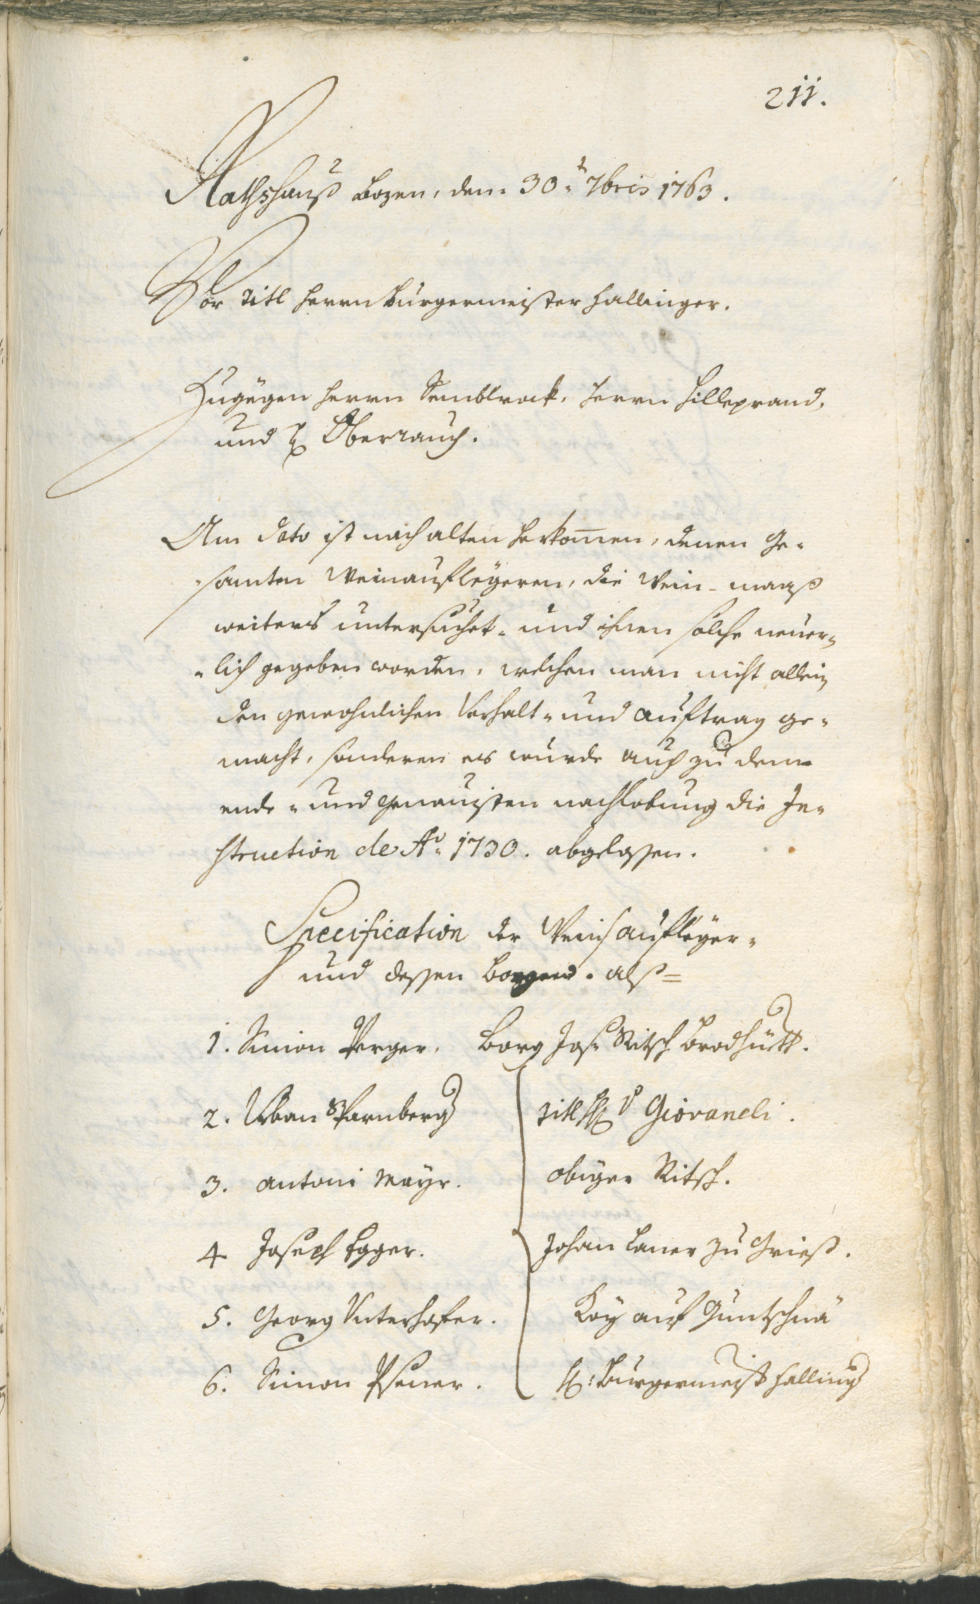 211.
Rathshauß Bozen, den 30.t 7bris 1763.
Vor Titl Herrn Burgermeister Hallinger.
Zugegen Herrn Semblrock, Herrn Hilleprand,
und H Oberrauch.
Am dato ist nach alten herkomen, denen Ge-
-samten Weinauflegeren, die Wein-maaß
weiters untersuchet- und ihnen solche neuer-
-lich gegeben worden, welchen man nicht allein
den gewohnlichen Verhalt- und Auftrag ge-
macht, sonderen es wurde auch zu dem
ende- und genauisten nachlebung die In-
struction de Ao 1730. abgelesen.
Specification der Weinaufleger-
und dessen Borgen. alß=
1. Simon Perger. Borg Jos: Ritsch Brodhütt.
2. Urban Sparnberg
Titl H v Giovaneli.
3. Antoni Mayr.
obiger Ritsch.
4 Joseph Egger.
Johan Laner zu Grieß.
5. Georg Unterhofer.
Loy auf Guntschna
6. Simon Psener.
H: Burgermeist Halling